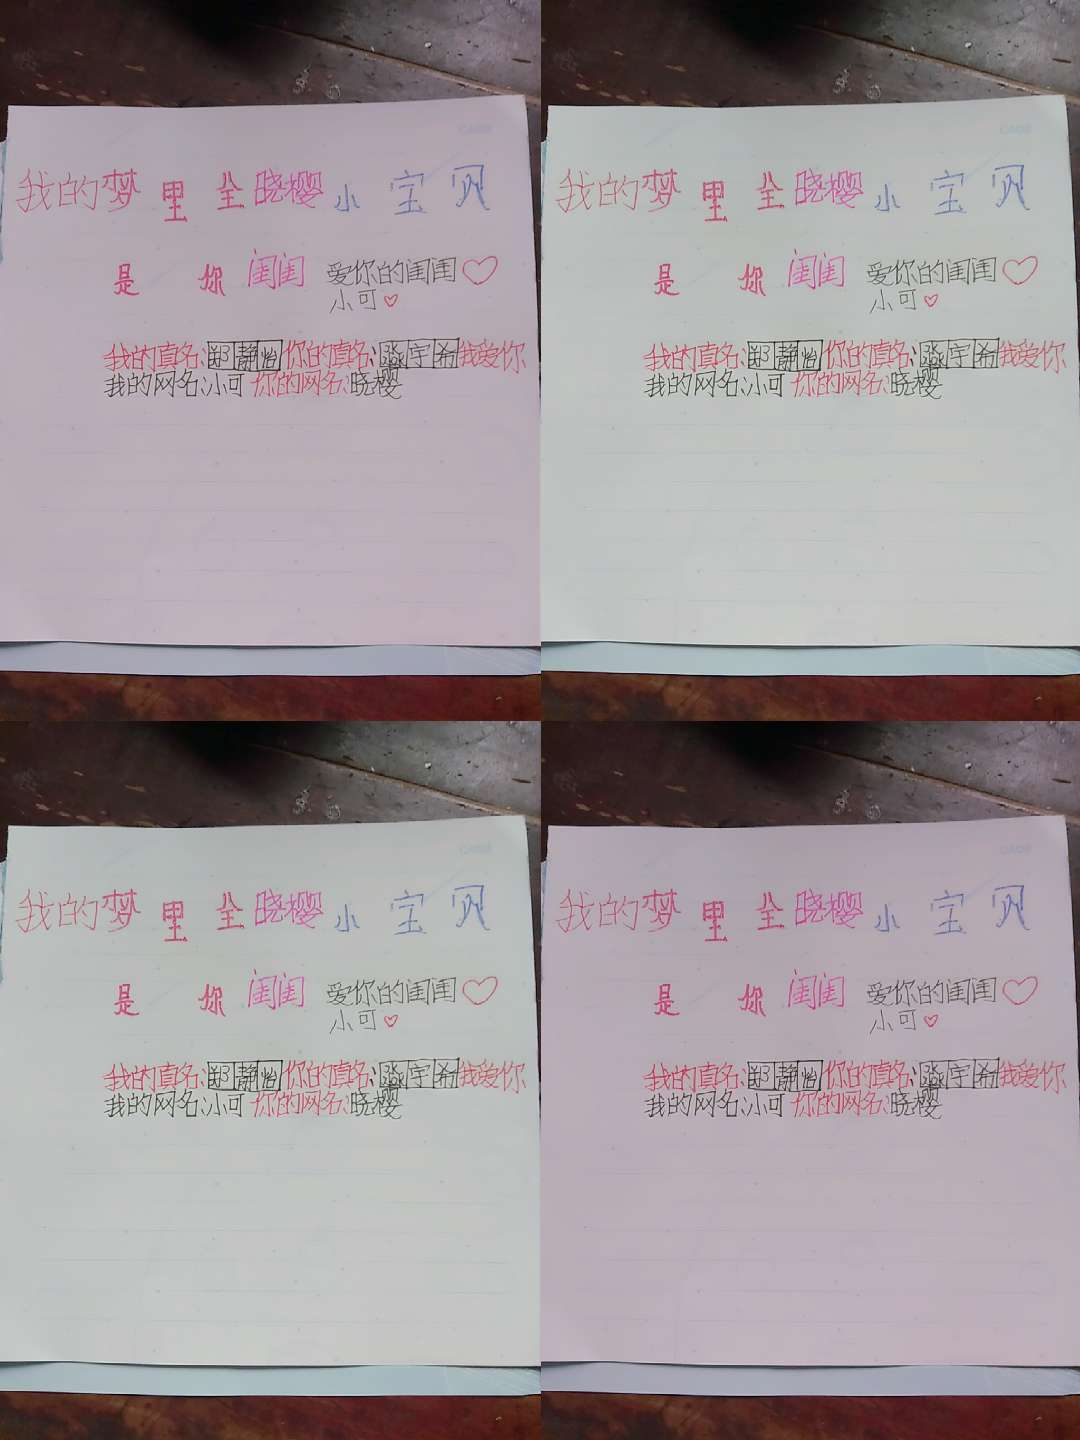 我的梦里全晓樱小宝贝
是你闺闺 爱你的闺闺♡
小可♡
我的真名:郑静怡你的真名:淼宇希我爱你
我的网名:小可 你的网名:晓樱
我的梦里全晓樱小宝贝
是你闺闺 爱你的闺闺♡
小可♡
我的真名:郑静怡你的真名:淼宇希我爱你
我的网名:小可 你的网名:晓樱
我的梦里全晓樱小宝贝
是你闺闺 爱你的闺闺♡
小可♡
我的真名:郑静怡你的真名:淼宇希我爱你
我的网名:小可 你的网名:晓樱
我的梦里全晓樱小宝贝
是你闺闺 爱你的闺闺♡
小可♡
我的真名:郑静怡你的真名:淼宇希我爱你
我的网名:小可 你的网名:晓樱